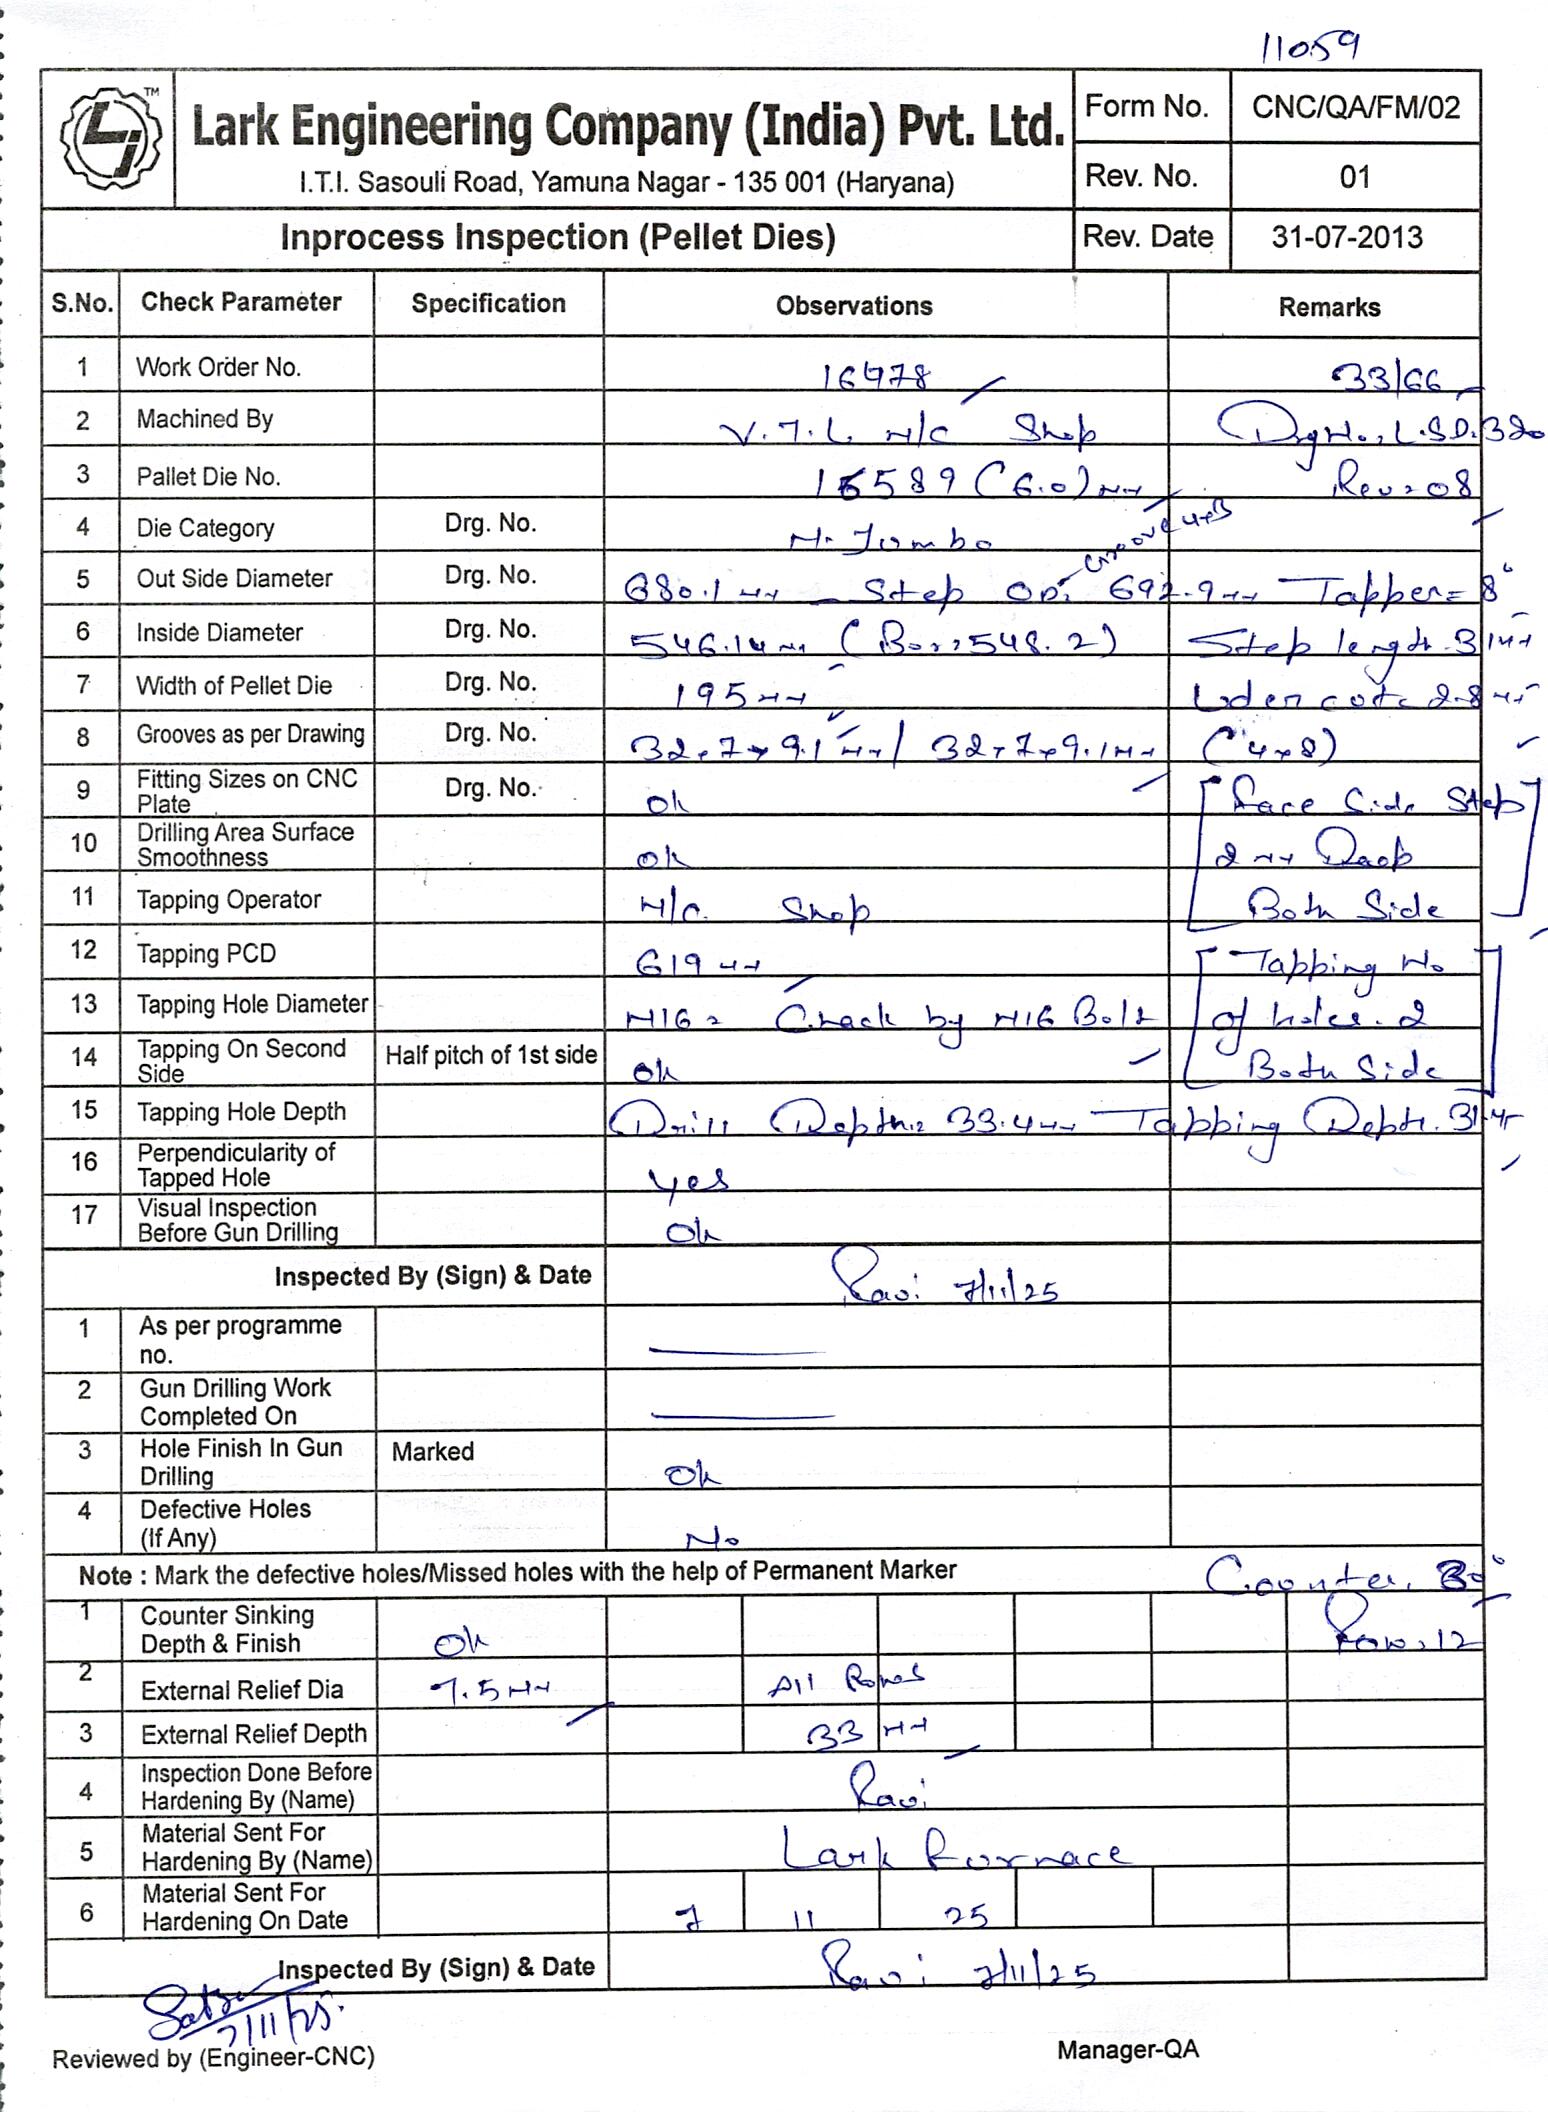 11059
Lark Engineering Company (India) Pvt. Ltd.
TM
I.T.I. Sasouli Road, Yamuna Nagar - 135 001 (Haryana)
Form No. CNC/QA/FM/02
Rev. No. 01
Inprocess Inspection (Pellet Dies) Rev. Date 31-07-2013
S.No. Check Parameter Specification Observations Remarks
1 Work Order No. 16478 33/66
2 Machined By V.T.L. M/C Shop Drg No. L.S.D. 320
3 Pallet Die No. 16589 (6.0) mm Rev. 08
4 Die Category Drg. No. M. Jumbo Groove 4x8
5 Out Side Diameter Drg. No. 680.1 mm Step OD. 692.9 mm Tapper = 8°
6 Inside Diameter Drg. No. 546.14 mm (Bor: 548.2) Step length. 31 mm
7 Width of Pellet Die Drg. No. 195 mm Uder cut. 2.8 mm
8 Grooves as per Drawing Drg. No. 32.7 x 9.1 mm / 32.7 x 9.1 mm (4x8)
9 Fitting Sizes on CNC Plate Drg. No. Ok Face Side Step
10 Drilling Area Surface Smoothness Ok 2 mm Daop
11 Tapping Operator M/C. Shop Both Side
12 Tapping PCD 619 mm Tapping No
13 Tapping Hole Diameter M16 = Check by M16 Bolt of holes. 2
14 Tapping On Second Side Half pitch of 1st side Ok Both Side
15 Tapping Hole Depth Drill Depth: 33.4 mm Tapping Depth.
16 Perpendicularity of Tapped Hole Yes
17 Visual Inspection Before Gun Drilling Ok
Inspected By (Sign) & Date Ravi 7/11/25
1 As per programme no.
2 Gun Drilling Work Completed On
3 Hole Finish In Gun Drilling Marked Ok
4 Defective Holes (If Any) No
Note : Mark the defective holes/Missed holes with the help of Permanent Marker Counter. 30°
1 Counter Sinking Depth & Finish Ok Row. 12
2 External Relief Dia 7.5 mm All Rows
3 External Relief Depth 33 mm
4 Inspection Done Before Hardening By (Name) Ravi
5 Material Sent For Hardening By (Name) Lark Furnace
6 Material Sent For Hardening On Date 7 11 25
Inspected By (Sign) & Date Ravi 7/11/25
7/11/25.
Reviewed by (Engineer-CNC) Manager-QA